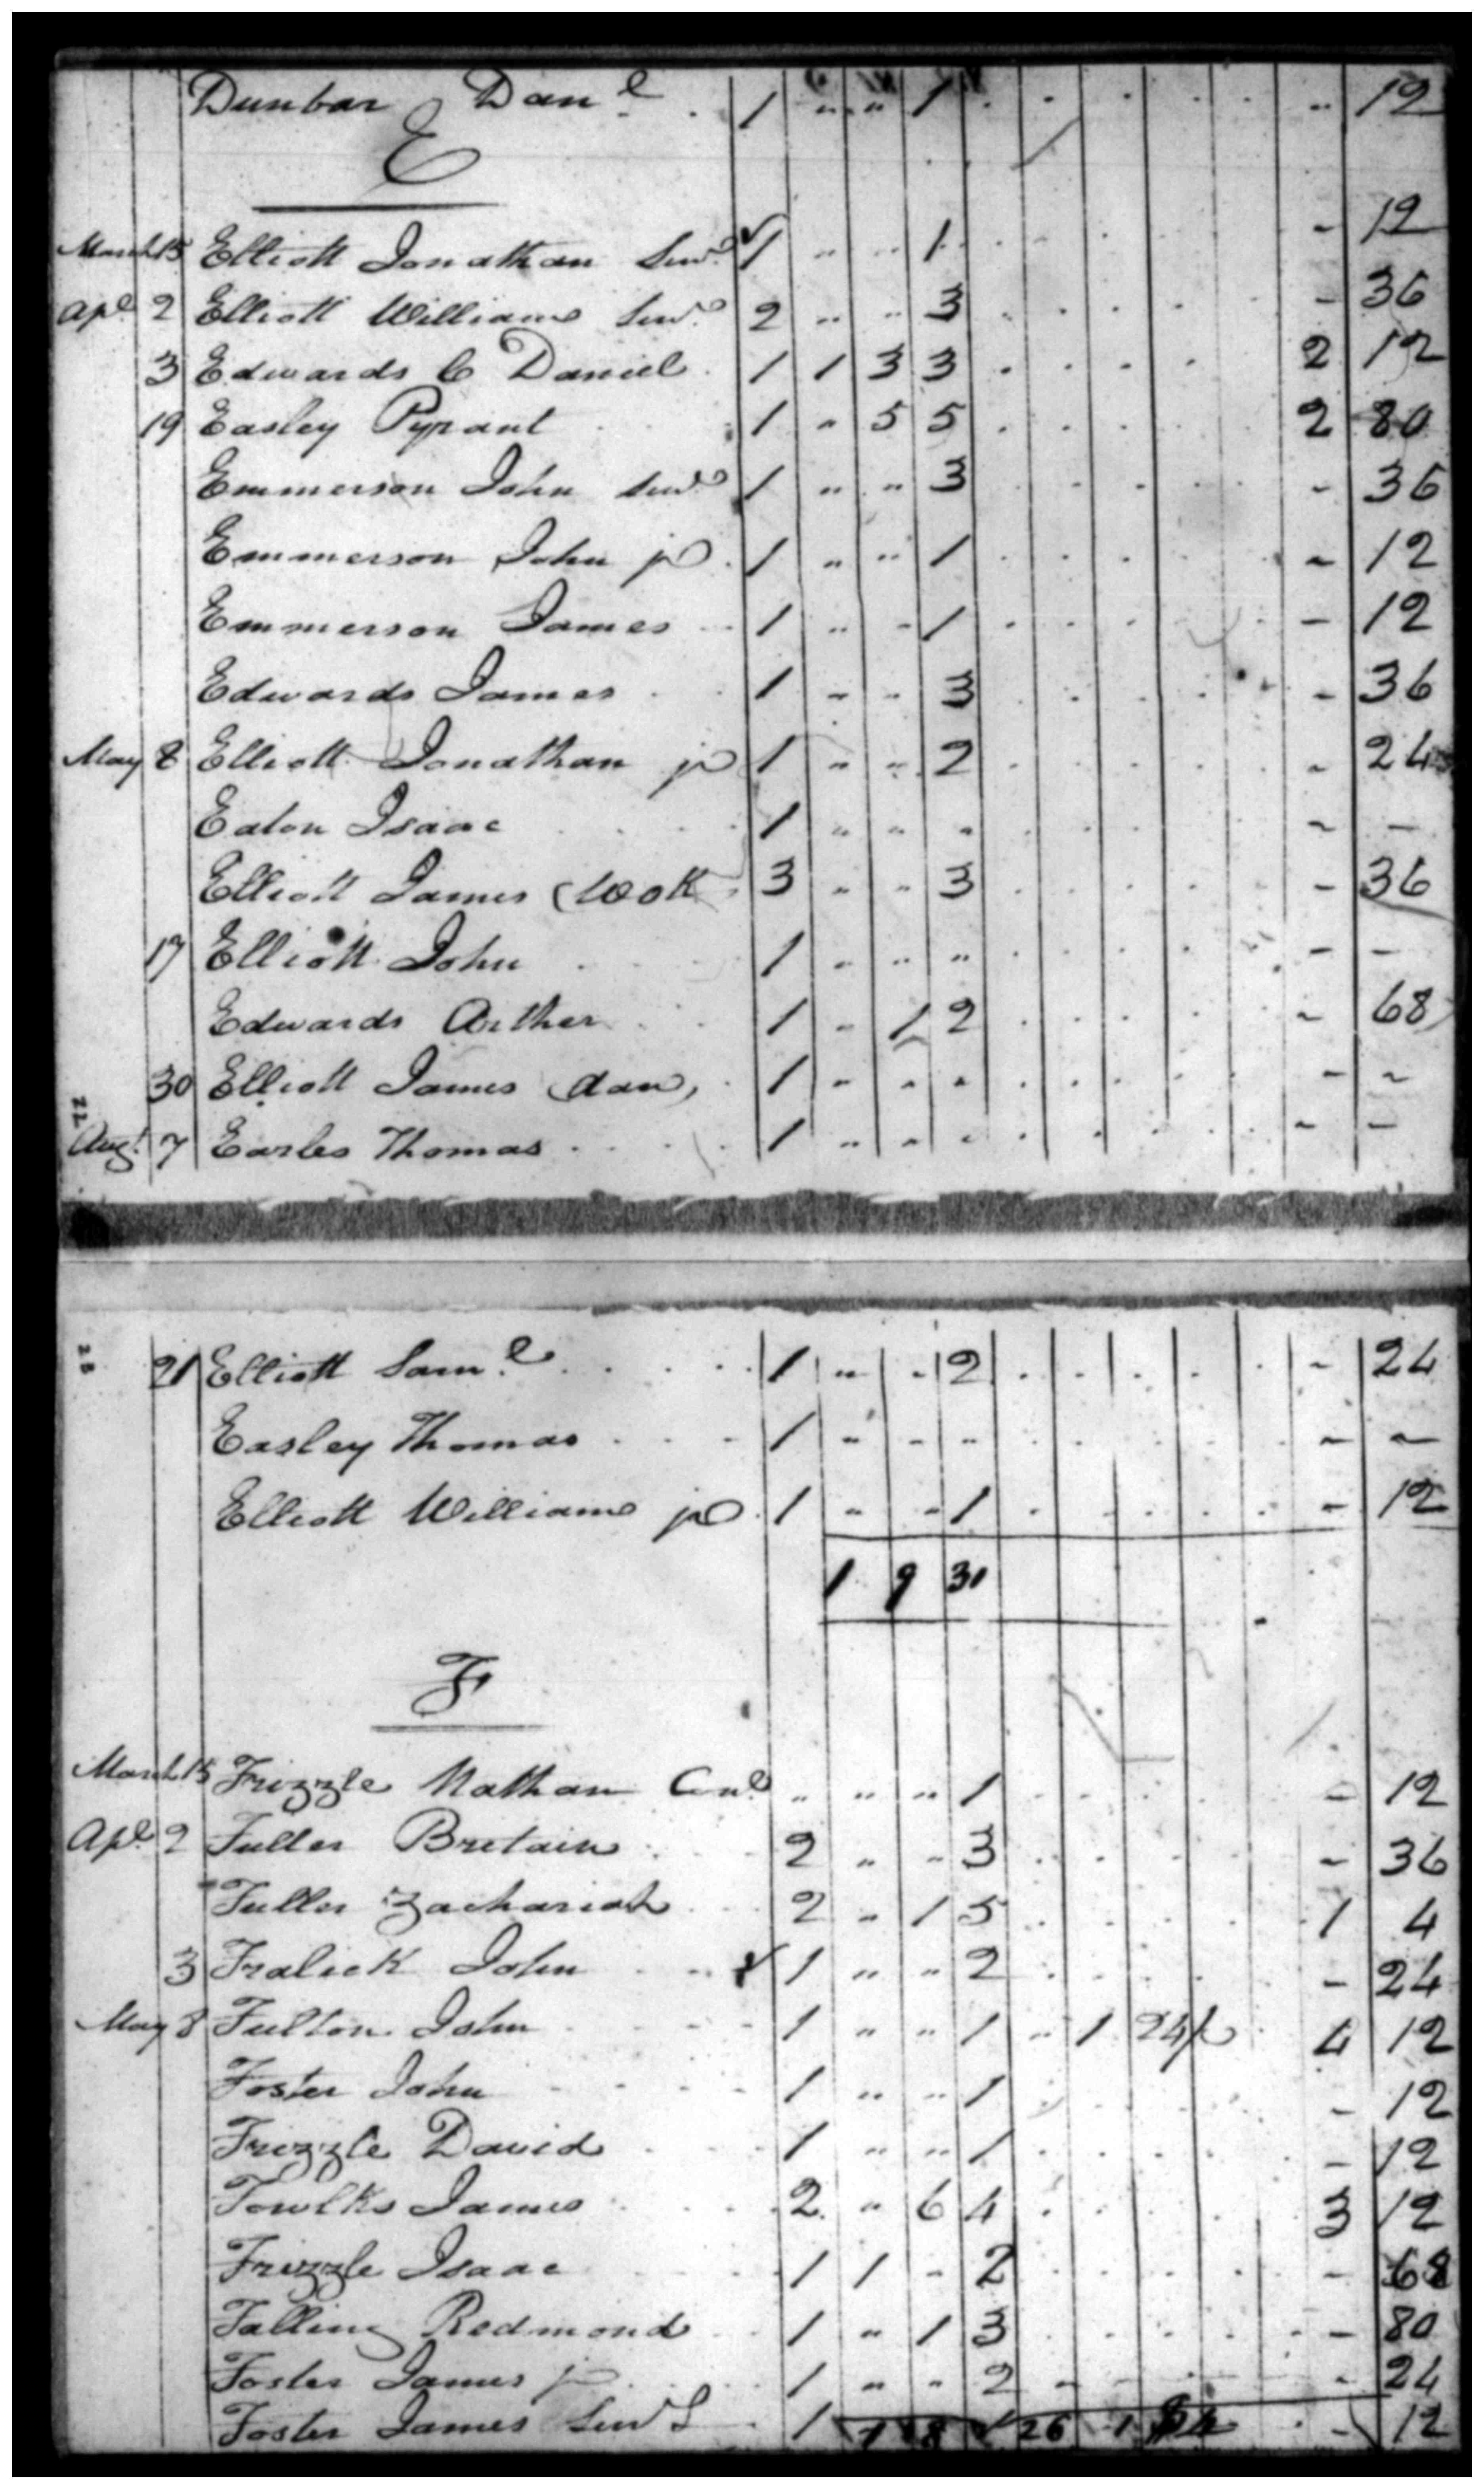 Dunbar Danl 1 " " 1 . . . . . . " 12
E
March 15 Elliott Jonathan Senr 1 " " 1 . . . . - 12
Apl 2 Elliott William Senr 2 " " 3 . . . . - 36
3 Edwards C Daniel 1 1 3 3 . . . . 2 12
19 Easley Pyrant 1 " 5 5 . . . . 2 80
Emmerson John Senr 1 " " 3 . . . . - 36
Emmerson John jr 1 " " 1 . . . . - 12
Emmerson James 1 " - 1 . . . . - 12
Edwards James 1 - - 3 . . . . - 36
May 8 Elliott Jonathan jr 1 " " 2 . . . . - 24
Eaton Isaac 1 " " " . . . . - -
Elliott James (Wolf 3 " " 3 . . . . - 36
17 Elliott John 1 - " " . . . . - -
Edwards Arther 1 - 1 2 . . . . - 68
30 Elliott James (dan) 1 - - - . . . . - -
22
Augt 7 Earles Thomas 1 " - - . . . . - -
23
21 Elliott Saml 1 " - 2 . . . . - 24
Easley Thomas 1 - - - . . . . - -
Elliott William jr 1 - - 1 . . . . - 12
1 9 31
F
March 15 Frizzle Nathan Conl " " " 1 . . . . - 12
Apl 2 Fuller Bretain 2 " - 3 . . . . - 36
Fuller Zachariah 2 - 1 5 . . . . 1 4
3 Fralick John 1 " " 2 . . . . - 24
May 8 Fulton John 1 " " 1 " 1 24/ 4 12
Foster John 1 " " 1 . . . . - 12
Frizzle David 1 " " 1 . . . . - 12
Fowlks James 2 " 6 4 . . . . 3 12
Frizzle Isaac 1 1 - 2 . . . . - 68
Falling Redmond 1 " 1 3 . . . . - 80
Foster James jr 1 " - 2 - . . . - 24
Foster James Senr 1 1 8 26 1 - 12